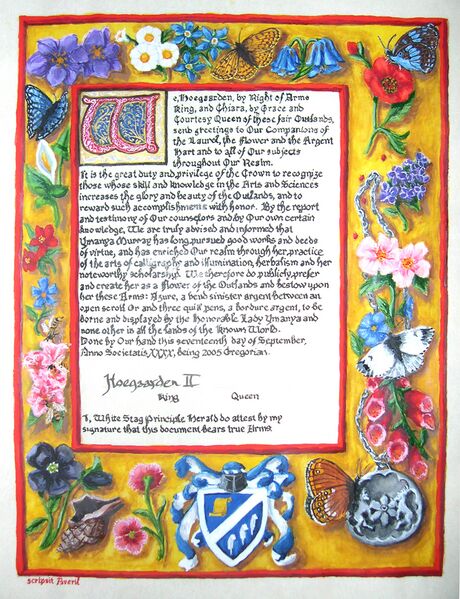 We, Hoegaarden, by Right of Arms
King, and Chiara, by Grace and
Courtesy Queen of these fair Outlands,
send greetings to Our Companions of
the Laurel, the Flower and the Argent
Hart and to all of Our subjects
throughout Our Realm.
It is the great duty and privilege of the Crown to recognize
those whose skill and knowledge in the Arts and Sciences
increases the glory and beauty of the Outlands, and to
reward such accomplishments with honor. By the report
and testimony of Our counselors and by Our own certain
knowledge, We are truly advised and informed that
Ymanya Murray has long pursued good works and deeds
of virtue, and has enriched Our realm through her practice
of the arts of calligraphy and illumination, herbalism and her
noteworthy scholarship. We therefore do publicly prefer
and create her as a Flower of the Outlands and bestow upon
her these Arms: Azure, a bend sinister argent between an
open scroll Or and three quill pens, a bordure argent, to be
borne and displayed by the Honorable Lady Ymanya and
none other in all the lands of the Known World.
Done by Our hand this seventeenth day of September,
Anno Societatis XXXX, being 2005 Gregorian.
Hoegaarden II
King Queen
I, White Stag Principle Herald do attest by my
signature that this document bears true Arms.
scripsit Paveril